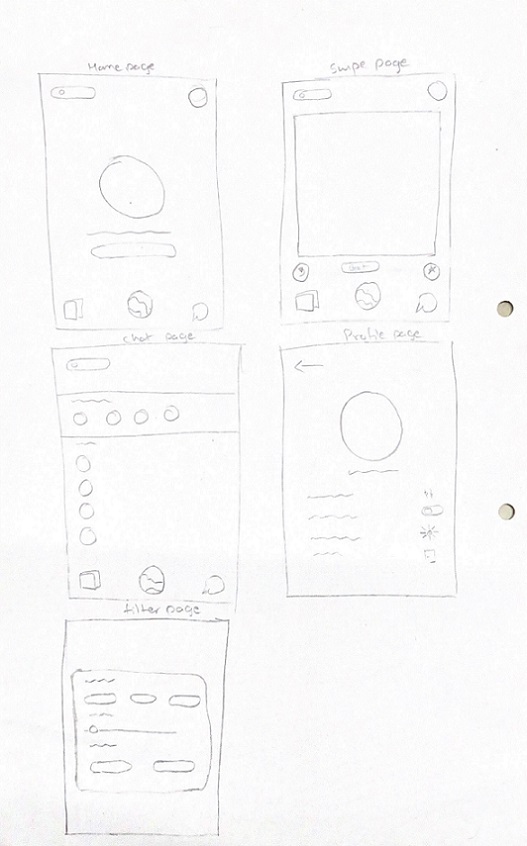 Home page
Swipe page
chat page
Profile page
filter page